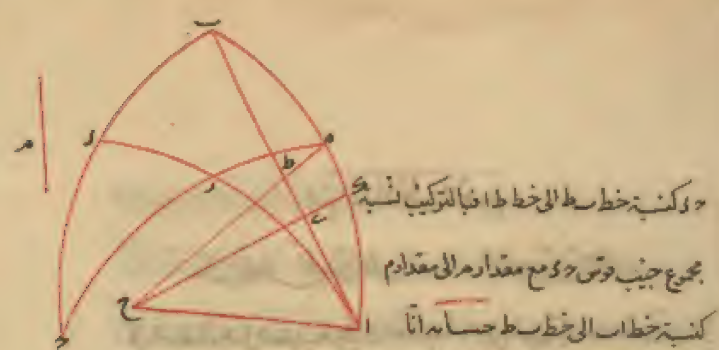 ب
د
ه
م
ط
ر
ح
ا
ح
حء كنسبة خط ب ط الى خط ط ا فبالتركيب نسبة
مجموع جيب قوس حء مع مقدار م الى مقدار م
كنسبة خط اب الى خط ب ط